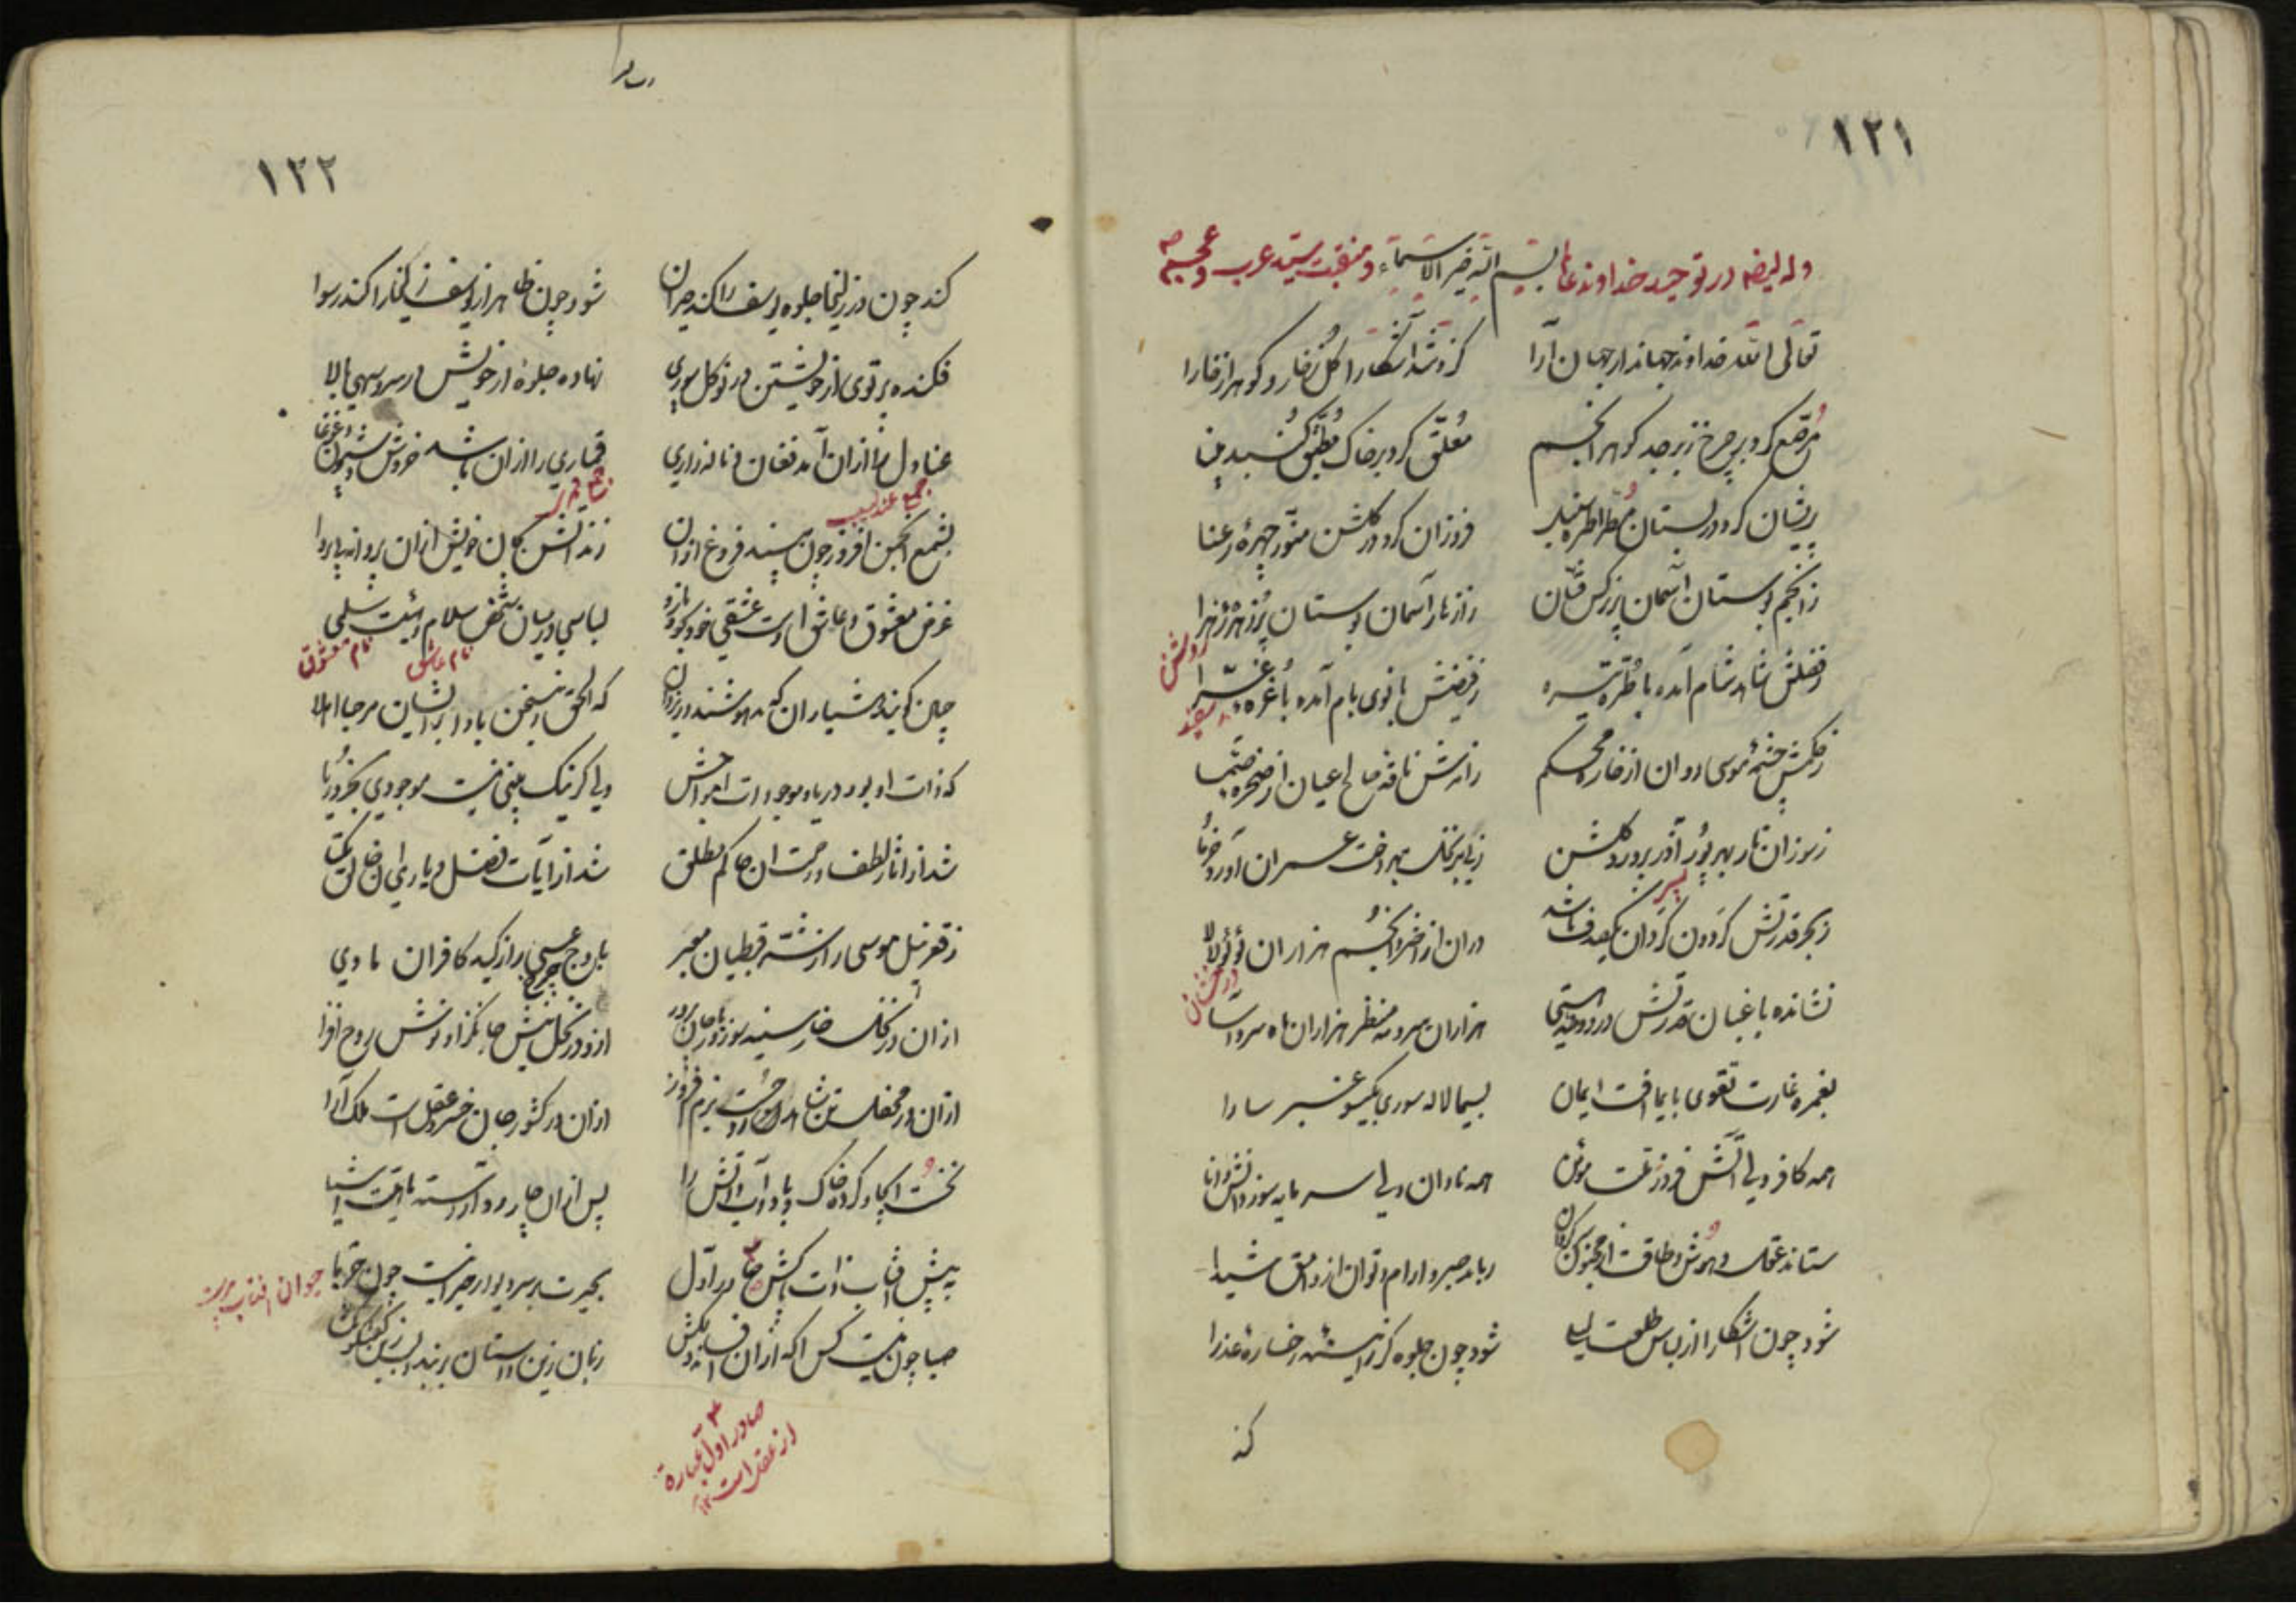 ۱۲۱
وله ایضا در توحید خداوند بسم الله خیر الاسماء و منقبت سید عرب و عجم
تعالی الله خداوند جهاندار جهان آرا کزو شد آشکارا گل ز خار و گوهر از خارا
مرصع کرد بر چرخ زبرجد گوهر انجم معلق کرد بر خاک مطبق گنبد مینا
پریشان کرد در بستان مطرا طره سنبل فروزان کرد در گلشن منور چهره رعنا
ز انجم بوستان آسمان پر نرگس فتان ز ازهار آسمان بوستان پر زهره زهرا
روشن
ز فضلش شاهد شام آمده با طره تیره ز فیضش بانوی بام آمده با غره غرا
سفید
ز حکمش چشمه موسی روان از خاره محکم ز امرش ناقه صالح عیان از صخره صما
ز سوزان نار بهر پور آذر پرورد گلشن ز بی بر نخل بهر دخت عمران آورد خرما
پسر
ز بحر قدرتش گردون گردان یکصدف باشد در آن از اختر و انجم هزاران لؤلؤ لالا
درخشان
نشانده باغبان قدرتش در روضه هستی هزاران سرو مه منظر هزاران ماه سرو آسا
بغمزه غارت تقوی بایما آفت ایمان بسیما لاله سوری بگیسو عنبر سارا
همه کافر ولی آتش فروز ملت مؤمن همه نادان ولی سرمایه سوز دانش دانا
ستاند عقل و هوش و طاقت از مجنون سرگردان رباید صبر و ارام و توان از وامق شیدا
شود چون آشکارا از لباس طلعت لیلی شود چون جلوه گر ز آیینه رخساره عذرا
کند
۱۲۲
کند چون در زلیخا جلوه یوسف را کند حیران شود چون ظاهر از یوسف زلیخا را کند رسوا
فکنده پرتوی از خویشتن در نو گل سوری نهاده جلوه از خویش در سرو سهی بالا
عنادل را از ان آمد فغان و ناله و زاری قماری را از ان باشد خروش و شیون و غوغا
جمع عندلیب جمع قمری
بشمع انجمن افروز چون بیند فروغ از ان زند آتش بجان خویش از ان پروانه بی پروا
غرض معشوق و عاشق اوست عشقی خود بخود بازد لباسی در میان شخص سلام و هیئت سلمی
نام عاشق نام معشوق
چنین گویند هشیاران که مدهوشند در که الحق زین سخن بادا بر ایشان مرحبا اهلا
که ذات او بود دریا و موجودات امواجش ولی گر نیک بینی نیست موجودی بجز دریا
شد از اثار لطف و رحمت ان حاکم مطلق شد از آیات فضل و یاری ان خالق یکتا
ز قعر نیل موسی را ز شر قبطیان معبر باوج چرخ عیسی را ز کید کافران ماوی
ازان در نخل خار سینه سوز و نار جان پرور ازو در نحل نیش جانگزا و نوش روح افزا
ازان در محفل تن شاهد روحست بزم افروز ازان در کشور جان خسرو عقل است ملک آرا
نخست ایجاد کرد خاک و باد و آب و آتش را پس از ان چار رو آراسته باقیت اشیا
به پیش آفتاب ذات پاکش صادر اول بحیرت بر سر دیوار حیرانیست چون حربا
حیوان افتاب پرست
صبا چون نیست کس اگه از ان زبان زین داستان بربند
صادر اول عبارة
از عقل است ۱۲